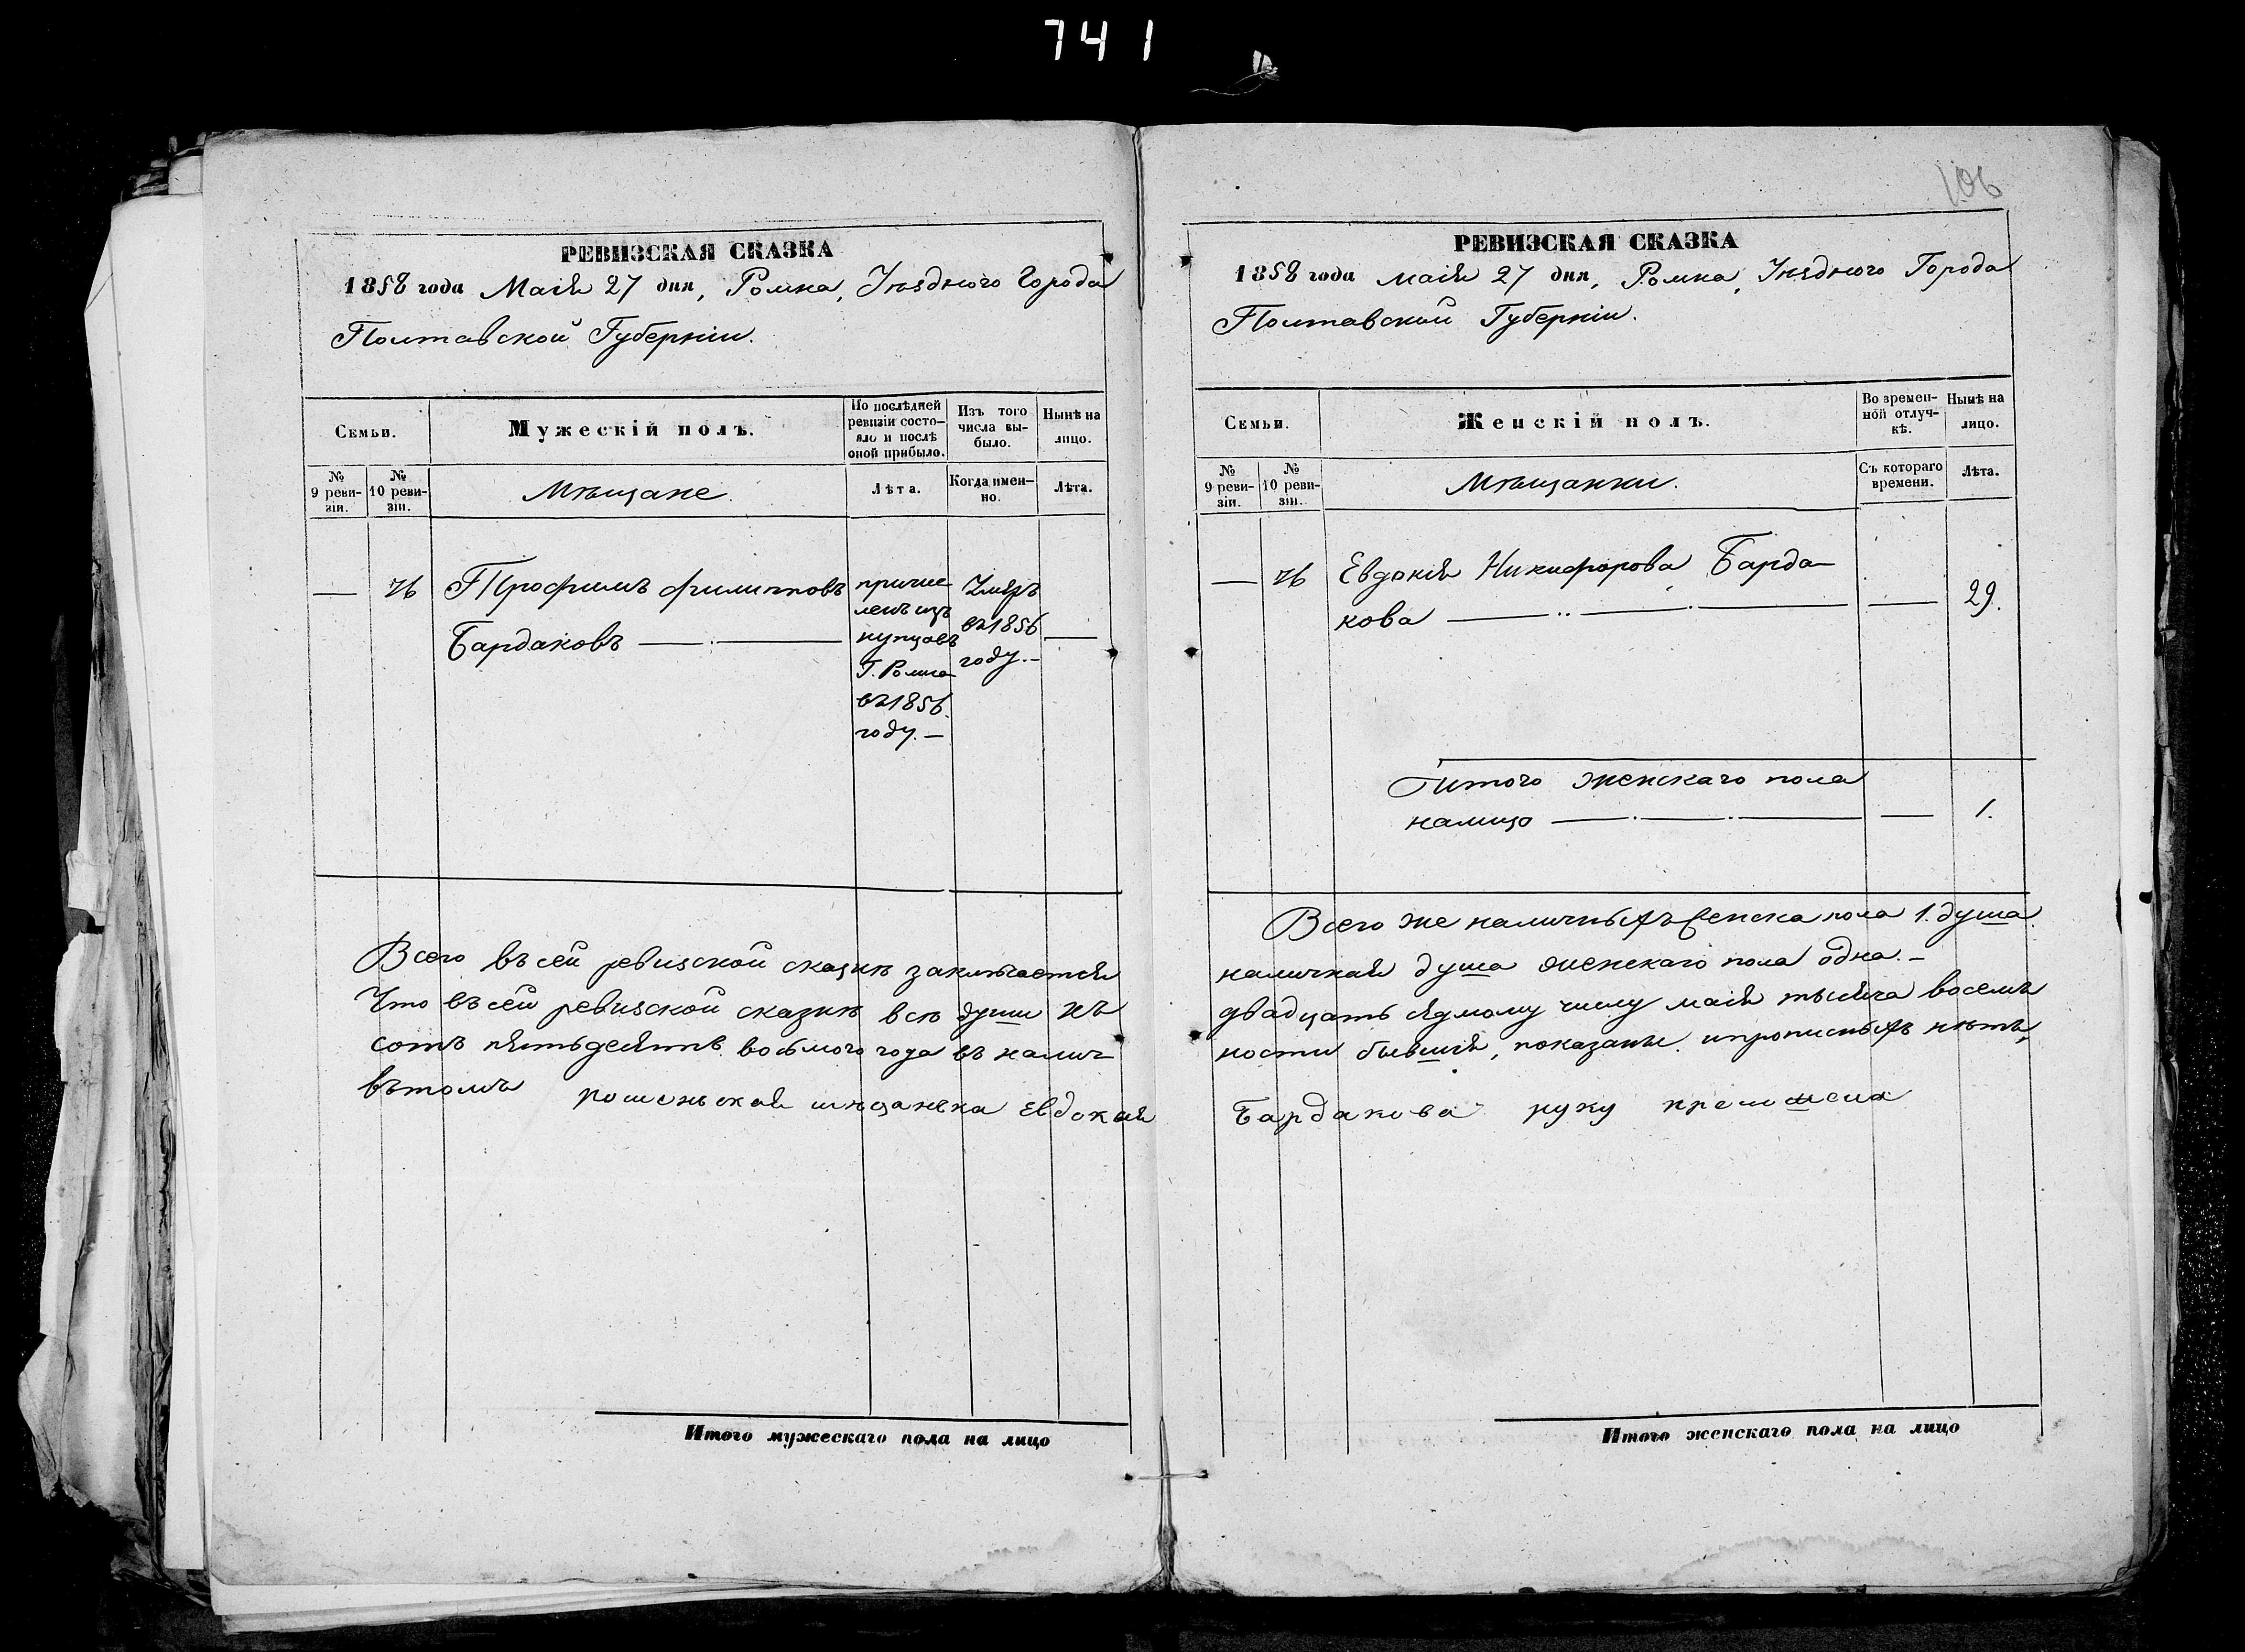 741
РЕВИЗСКАЯ СКАЗКА
1858 года Маія 27 дня, Ромна, Уѣзднаго Города
Полтавской Губерніи.
Семьи.
Мужескій полъ.
По послѣдней ревизіи состояло и послѣ оной прибыло.
Изъ того числа выбыло.
Нынѣ на лицо.
№ 9 ревизіи.
№ 10 ревизіи.
Мѣщане.
Лѣта.
Когда именно.
Лѣта.
— 76 Трофимъ Филиповъ
Бардаковъ —
причи
ленъ изъ
купцовъ
Г. Ромна
въ 1856
году. —
Умеръ
въ 1856
году. —
Всего въ сей ревизской сказкѣ заключается
Что въ сей ревизской сказкѣ всѣ души къ
сотъ пятьдесятъ восьмого года въ налич
въ томъ роменьская мѣщанька Евдокия
Итого мужескаго пола на лицо
106
РЕВИЗСКАЯ СКАЗКА
1858 года маія 27 дня, Ромна, Уѣзднаго Города
Полтавской Губерніи.
Семьи.
Женскій полъ.
Во временной отлучкѣ.
Нынѣ на лицо.
№ 9 ревизіи.
№ 10 ревизіи.
Мѣщанки.
Съ котораго времени.
Лѣта.
— 76 Евдокія Никифорова Барда-
кова — — 29.
Итого женскаго пола
налицо — — 1.
Всего же наличныхъ пола 1. душа.
наличная душа женскаго пола одна. —
двадцать седмому числу маія тысяча восемь
ности бывшія, показаны. и прописныхъ нѣтъ,
Бардакова руку
Итого женскаго пола на лицо